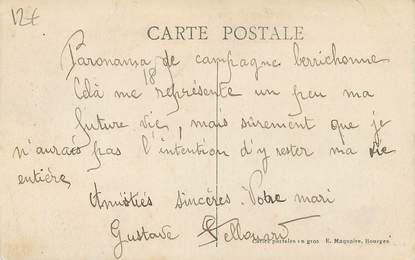 12€
CARTE POSTALE
Paronama de campagne berrichonne
18
Celà me représente un peu ma
future vie, mais sûrement que je
n'aurais pas l'intention d'y rester ma vie
entière
Amitiés sincères. Votre mari
Gustave
Cartes postales en gros E. Maquaire, Bourges